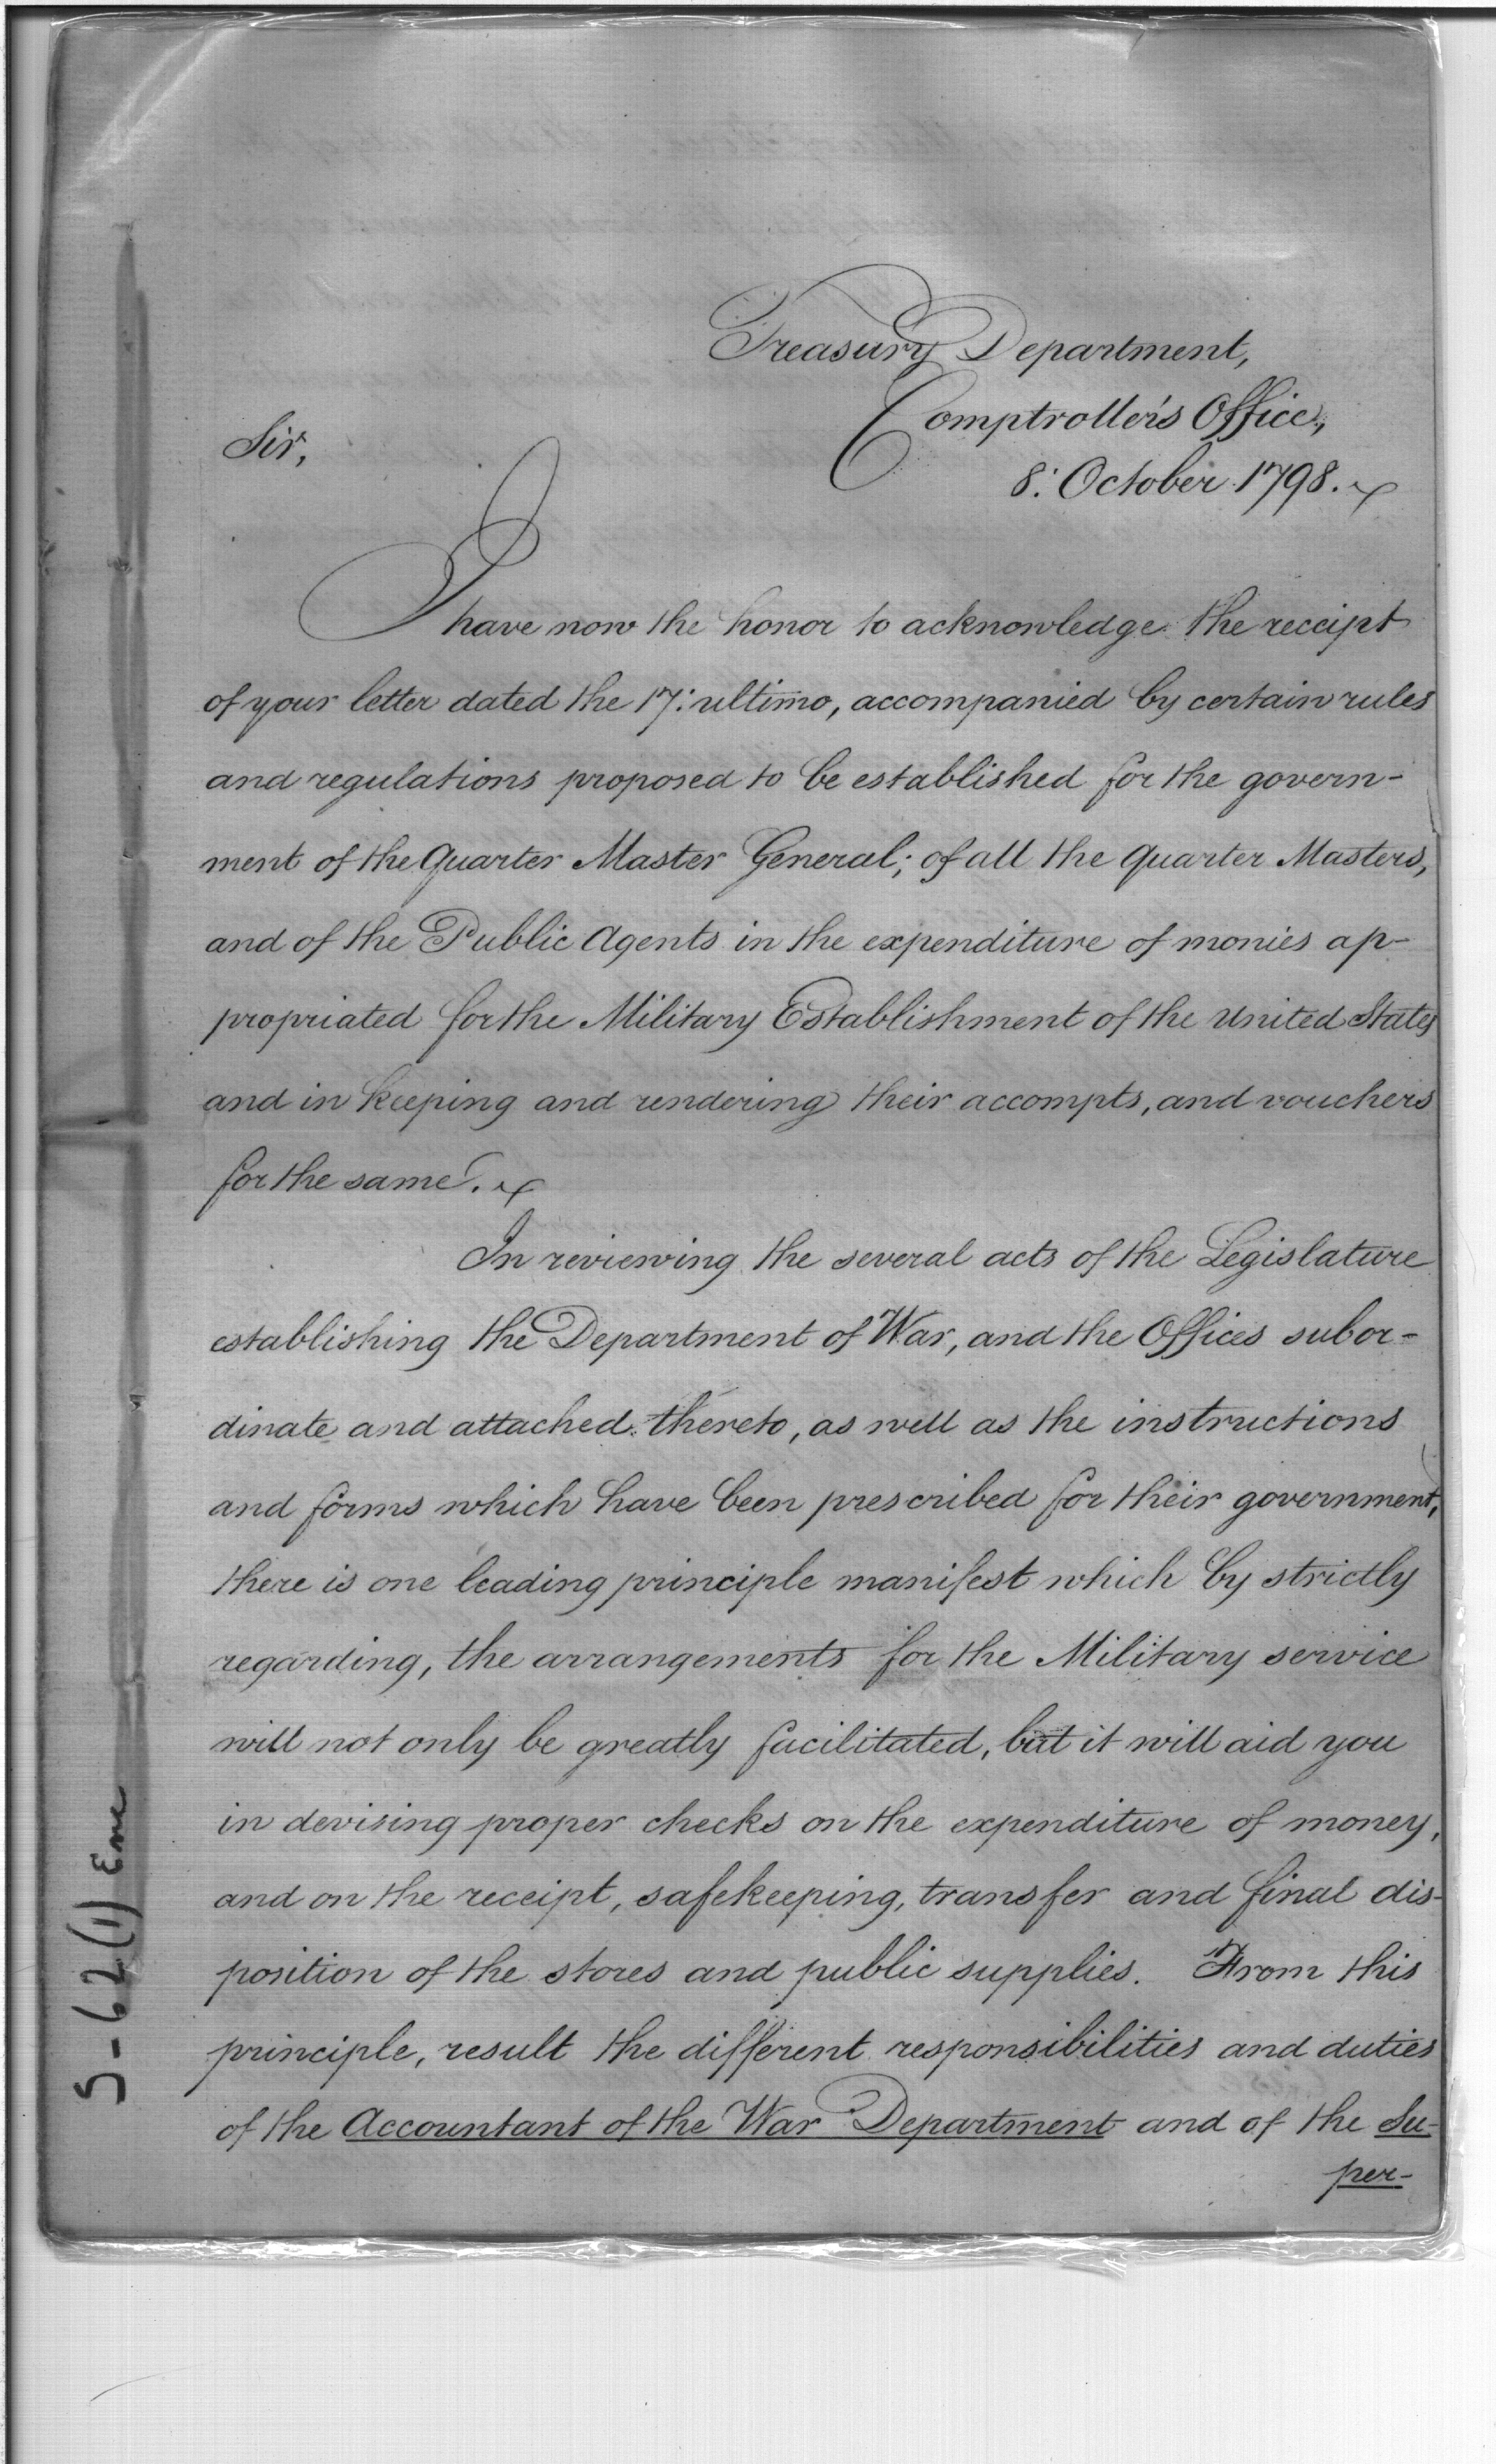 Treasury Department,
Comptroller's Office,
Sir,
8: October 1798.
I have now the honor to acknowledge the receipt
of your letter dated the 17: ultimo, accompanied by certain rules
and regulations proposed to be established for the govern-
ment of the Quarter Master General; of all the Quarter Masters,
and of the Public Agents in the expenditure of monies ap-
propriated for the Military Establishment of the United States
and in keeping and rendering their accompts, and vouchers
for the same.
In reviewing the several acts of the Legislature
establishing the Department of War, and the Offices subor-
dinate and attached thereto, as well as the instructions
and forms which have been prescribed for their government,
there is one leading principle manifest which by strictly
regarding, the arrangements for the Military service
will not only be greatly facilitated, but it will aid you
in devising proper checks on the expenditure of money,
and on the receipt, safekeeping, transfer and final dis-
position of the stores and public supplies. From this
principle, result the different responsibilities and duties
of the Accountant of the War Department and of the Su-
per-
5-62(1) Enc